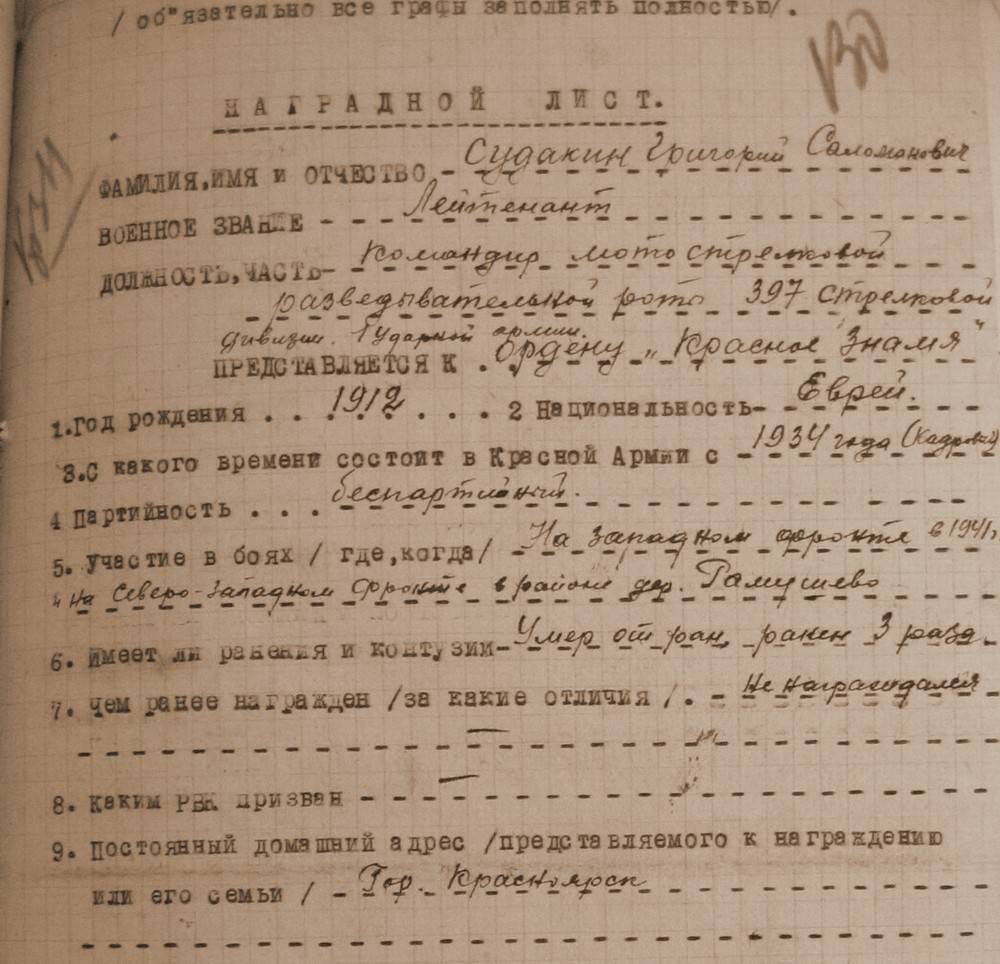 / об"язательно все графы заполнять полностью/.
НАГРАДНОЙ ЛИСТ.
ФАМИЛИЯ,ИМЯ И ОТЧЕСТВО - Судакин Григорий Саломонович
ВОЕННОЕ ЗВАНИЕ - - - Лейтенант
ДОЛЖНОСТЬ,ЧАСТЬ- Командир мотострелковой
разведывательной роты 397 стрелковой
дивизии. 1 Ударной армии.
ПРЕДСТАВЛЯЕТСЯ К . . ордену „Красное Знамя"
1.Год рождения . . . 1912 . . . 2 Национальность- Еврей.
3.С какого времени состоит в Красной Армии с - 1934 года (Кадровый)
4 Партийность . . . беспартийный.
5. Участие в боях / где,когда/ - На Западном фронте в 1941г.
и на Северо-Западном фронте в районе дер. Рамушево
6. Имеет ли ранения и контузии- Умер от ран, ранен 3 раза
7. Чем ранее награжден /за какие отличия /. - Не награждался
8. Каким РВК призван - - - - - - - - - - - -
9. Постоянный домашний адрес /представляемого к награждению
или его семьи / - Гор. Красноярск